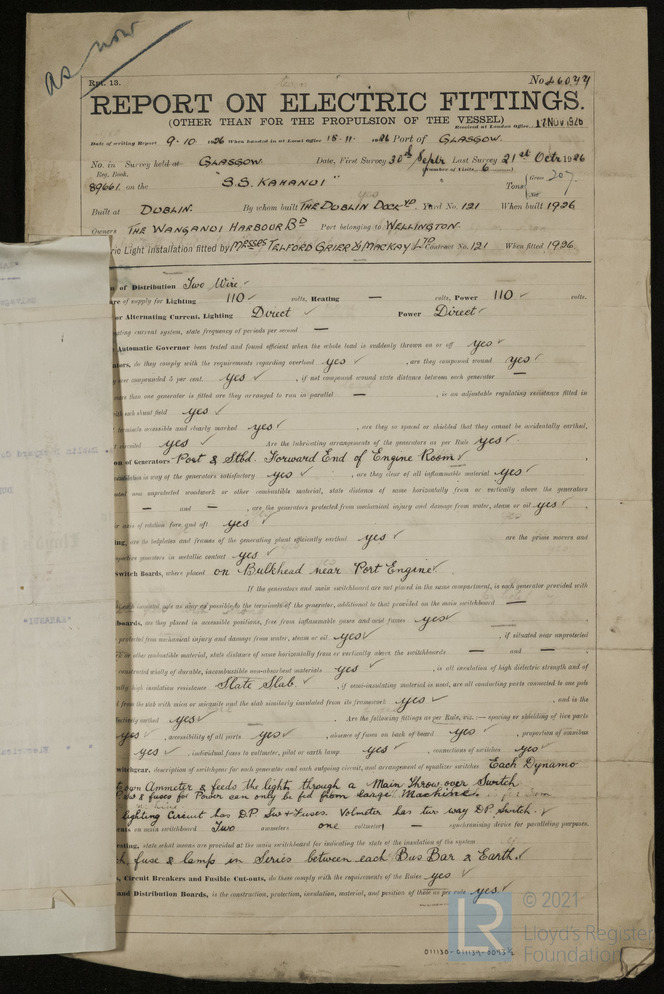 as now
Rpt. 13.
No. 46044
REPORT ON ELECTRIC FITTINGS.
(OTHER THAN FOR THE PROPULSION OF THE VESSEL)
Received at London Office 17 NOV 1926
Date of writing Report 9·10· 1926 When handed in at Local Office 15·11· 1926 Port of GLASGOW.
No. in Survey held at GLASGOW Date, First Survey 30th Septr Last Survey 21st Octr 1926
Reg. Book. (Number of Visits 6)
89661 on the "S.S. KAHANUI" Tons { Gross 207
Net
Built at DUBLIN. By whom built THE DUBLIN DOCKYD Yard No. 121 When built 1926
Owners THE WANGANUI HARBOUR BD Port belonging to WELLINGTON
ric Light Installation fitted by MESSRS TELFORD GRIER & MACKAY LTD Contract No. 121 When fitted 1926.
of Distribution Two Wire
of supply for Lighting 110 volts, Heating — volts, Power 110 volts.
or Alternating Current, Lighting Direct Power Direct
ating current system, state frequency of periods per second —
Automatic Governor been tested and found efficient when the whole load is suddenly thrown on or off yes
ators, do they comply with the requirements regarding overload yes, are they compound wound yes
over compounded 5 per cent. yes, if not compound wound state distance between each generator —
more than one generator is fitted are they arranged to run in parallel —, is an adjustable regulating resistance fitted in
with each shunt field yes
terminals accessible and clearly marked yes, are they so spaced or shielded that they cannot be accidentally earthed,
circuited yes Are the lubricating arrangements of the generators as per Rule yes
on of Generators Port & Stbd. Forward End of Engine Room
ventilation in way of the generators satisfactory yes, are they clear of all inflammable material yes
near unprotected woodwork or other combustible material, state distance of same horizontally from or vertically above the generators
— and —, are the generators protected from mechanical injury and damage from water, steam or oil yes
axis of rotation fore and aft yes
ing, are the bedplates and frames of the generating plant efficiently earthed yes are the prime movers and
respective generators in metallic contact yes
Switch Boards, where placed on Bulkhead near Port Engine
If the generators and main switchboard are not placed in the same compartment, is each generator provided with
as near as possible to the terminals of the generator, additional to that provided on the main switchboard —
boards, are they placed in accessible positions, free from inflammable gases and acid fumes yes
protected from mechanical injury and damage from water, steam or oil yes, if situated near unprotected
or other combustible material, state distance of same horizontally from or vertically above the switchboards — and —,
constructed wholly of durable, incombustible non-absorbent materials yes, is all insulation of high dielectric strength and of
high insulation resistance Slate Slab, if semi-insulating material is used, are all conducting parts connected to one pole
from the slab with mica or micanite and the slab similarly insulated from its framework yes, and is the
ectively earthed yes Are the following fittings as per Rule, viz.:— spacing or shielding of live parts
yes, accessibility of all parts yes, absence of fuses on back of board yes, proportion of omnibus
yes, individual fuses to voltmeter, pilot or earth lamp yes, connections of switches yes
witchgear, description of switchgear for each generator and each outgoing circuit, and arrangement of equalizer switches Each Dynamo
own Ammeter & feeds the lights through a Main Throw over Switch
& fuses for Power can only be fed from large Machine.
lighting Circuit has D.P. Sw & Fuses. Volmeter has two way D.P. Switch.
ents on main switchboard Two ammeters one voltmeter — synchronising device for paralleling purposes.
esting, state what means are provided at the main switchboard for indicating the state of the insulation of the system
ch, fuse & lamp in Series between each Bus Bar & Earth.
, Circuit Breakers and Fusible Cut-outs, do these comply with the requirements of the Rules yes
and Distribution Boards, is the construction, protection, insulation, material, and position of them as per rule yes
011130-011139-0093½
LR
© 2021
Lloyd's Register
Foundation